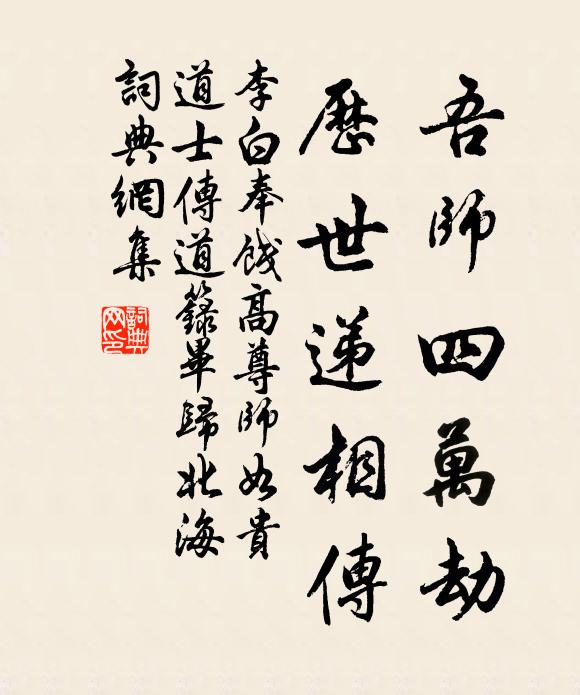 吾師四萬劫
歷世遞相傳
李白奉餞高尊師如貴
道士傳道籙畢歸北海
詞典網集
詞典
网印